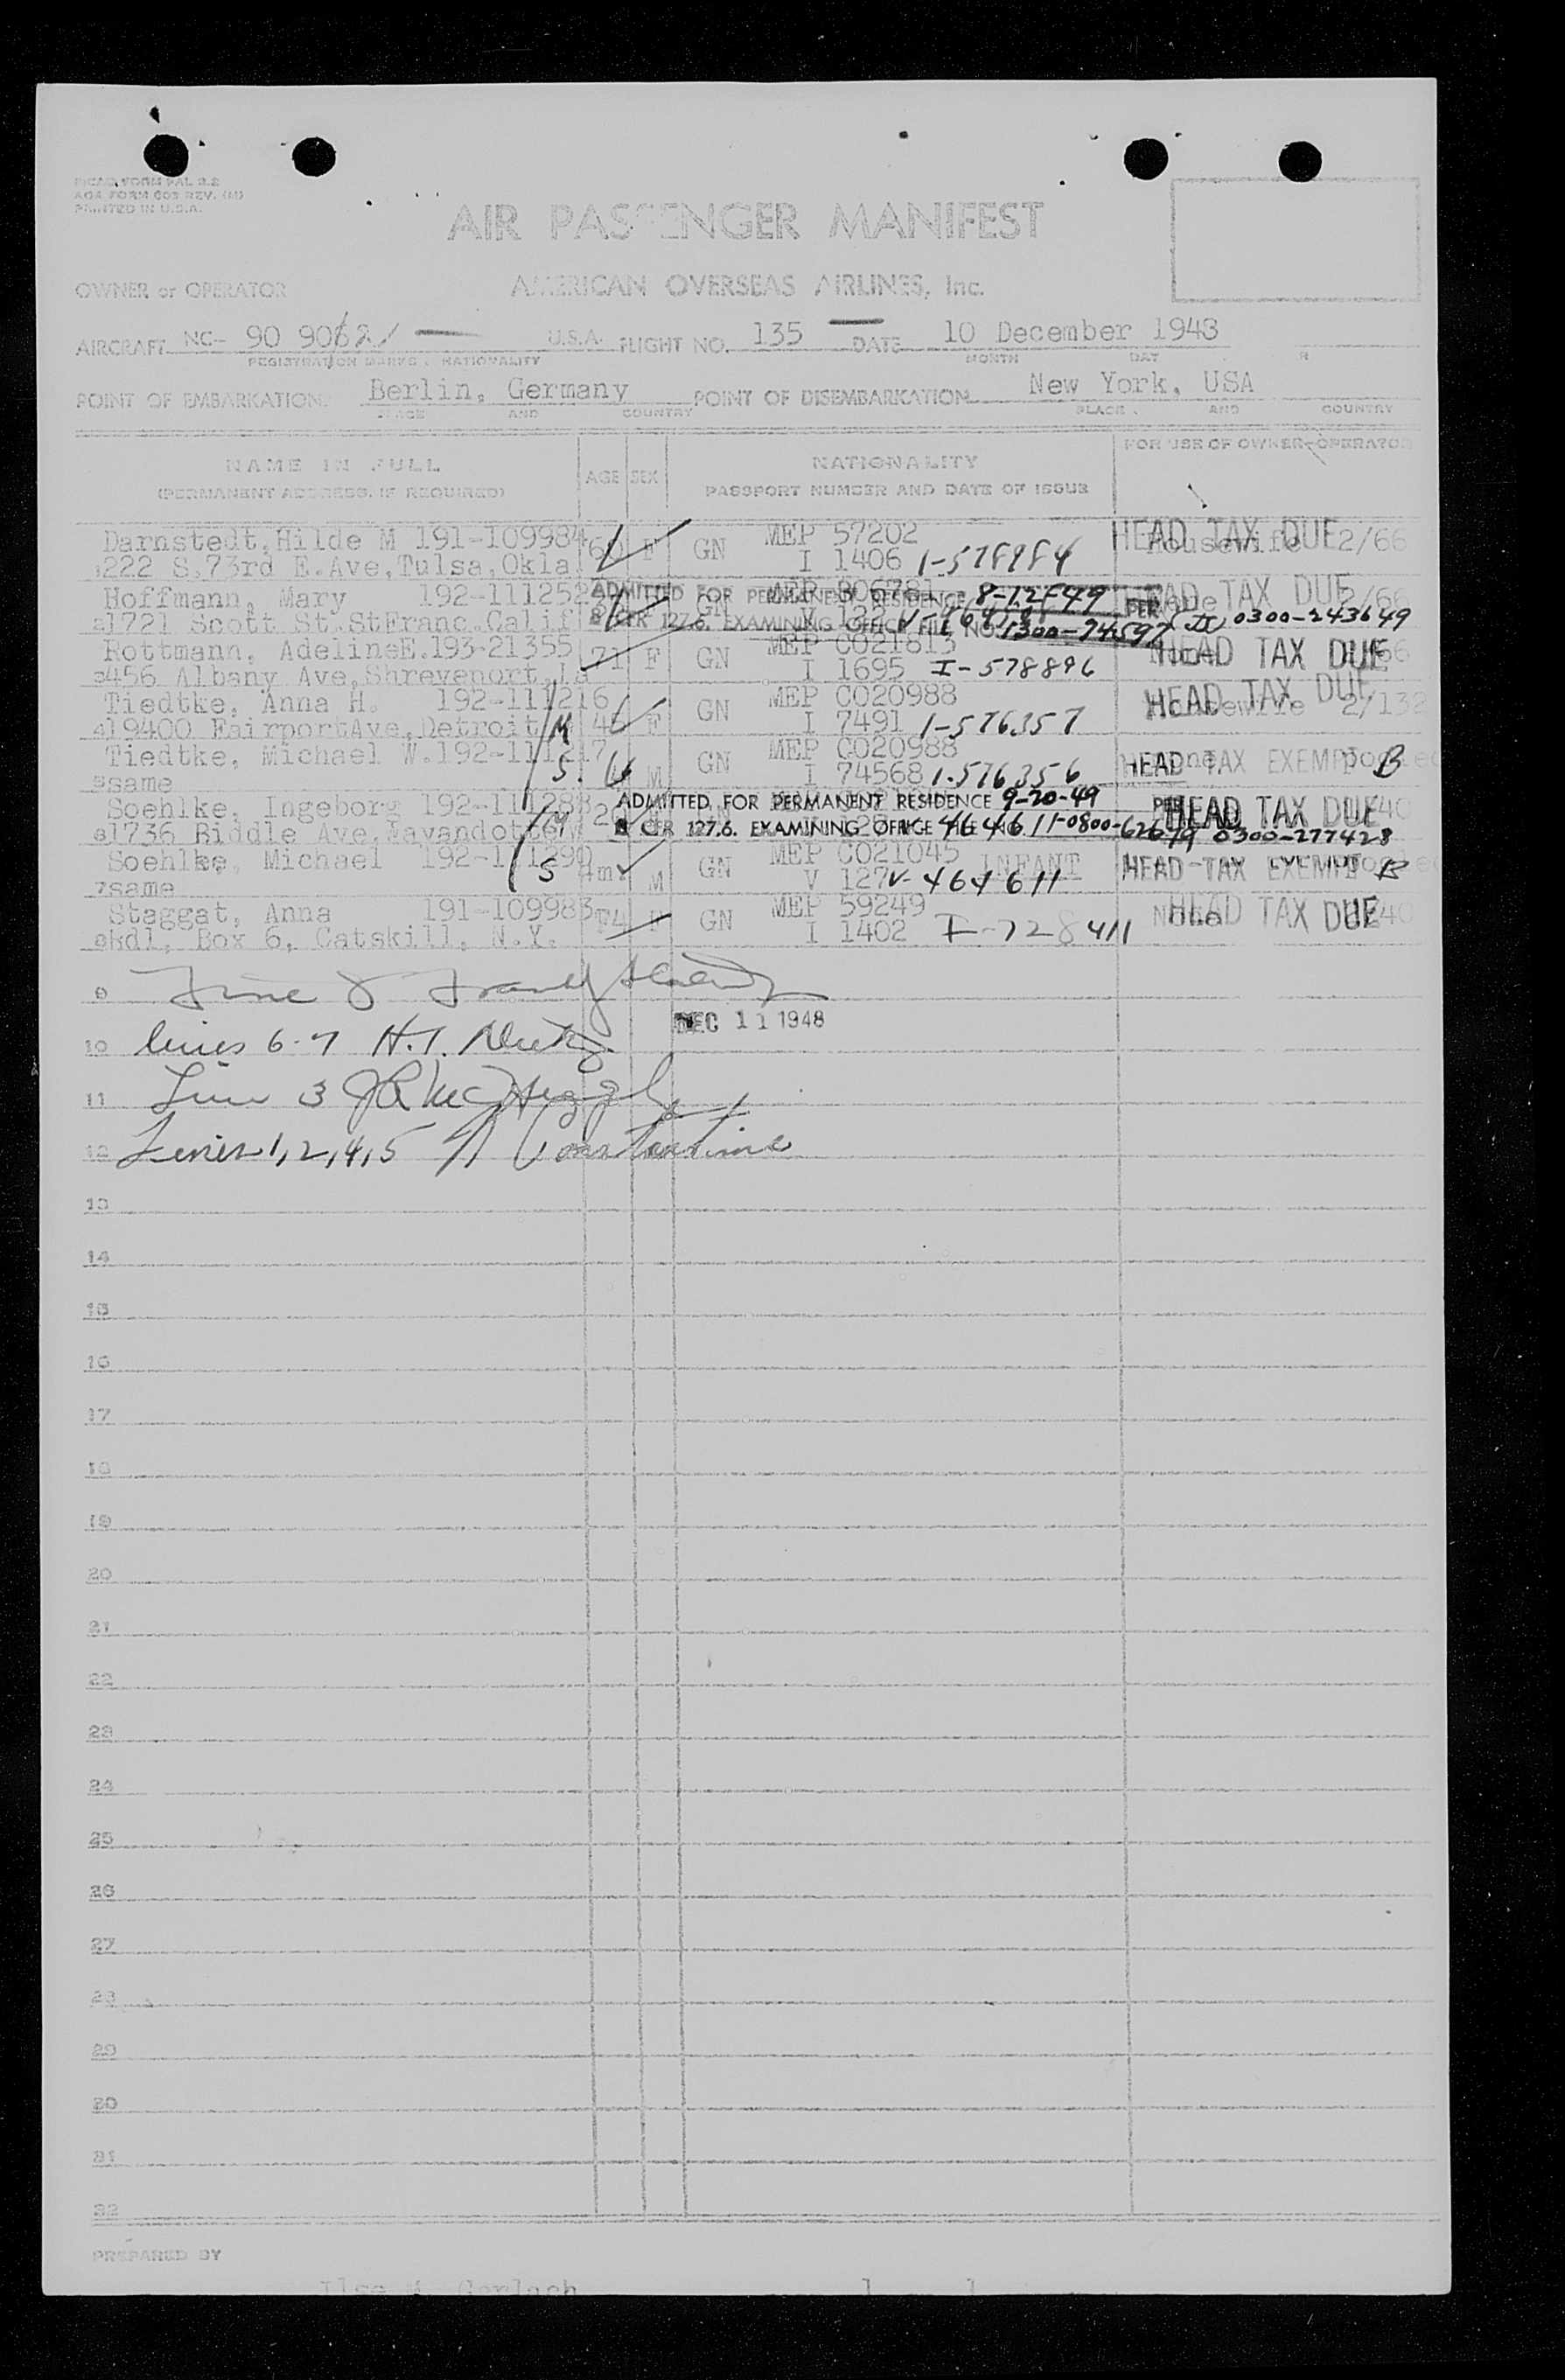 AOA FORM 603 REV. (M)
PRINTED IN U.S.A.
AIR PASSENGER MANIFEST
OWNER or OPERATOR AMERICAN OVERSEAS AIRLINES, Inc.
AIRCRAFT NC- 90 U.S.A. FLIGHT NO. 135 DATE 10 December 1948
REGISTRATION MARKS & NATIONALITY MONTH DAY
POINT OF EMBARKATION Berlin, Germany POINT OF DISEMBARKATION New York, USA
PLACE AND COUNTRY PLACE AND COUNTRY
NAME IN FULL AGE SEX NATIONALITY FOR USE OF OWNER-OPERATOR
(PERMANENT ADDRESS, IF REQUIRED) PASSPORT NUMBER AND DATE OF ISSUE
Darnstedt, Hilde M 191-109984 F GN MEP 57202 HEAD TAX DUE Housewife 2/66
1222 S.73rd E.Ave,Tulsa,Okla I 1406 1-578984
Hoffmann, Mary 192-111252 ADMITTED FOR PERMANENT RESIDENCE 8-12-49 HEAD TAX DUE 2/66
1721 Scott St. StFranc.Calif GN 8 CFR 127.6. EXAMINING OFFICE FILE NO. 1300-74597 PER 0300-243649
Rottmann, AdelineE.193-21355 71 F GN MEP CO21813 HEAD TAX DUE
456 Albany Ave,Shreveport,La I 1695 I-578896
Tiedtke, Anna H. 192-111216 F GN MEP CO20988 HEAD TAX DUE Housewife 2/132
4 19400 FairportAve,Detroit M I 7491 1-576357
Tiedtke, Michael W.192-111217 M GN MEP CO20988 HEAD TAX EXEMPT B
5 same S. I 74568 1-576356
Soehlke, Ingeborg 192-111288 ADMITTED FOR PERMANENT RESIDENCE 9-20-49 PER HEAD TAX DUE
6 1736 Biddle Ave, M 8 CFR 127.6. EXAMINING OFFICE FILE NO. 464611-0800-62679 0300-277428
Soehlke, Michael 192-111290 4m M GN MEP CO21045 INFANT HEAD TAX EXEMPT B
7 same S V 127 V-464611
Staggat, Anna 191-109983 F GN MEP 59249 None HEAD TAX DUE
8 Rd1, Box 6, Catskill, N.Y. I 1402 I-728411
9 Line 8
DEC 11 1948
10 lines 6-7 H.T.
11 Line 3
12 Lines 1,2,4,5 Constantine
13
14
15
16
17
18
19
20
21
22
23
24
25
26
27
28
29
30
31
32
PREPARED BY
Ilse Gerlach